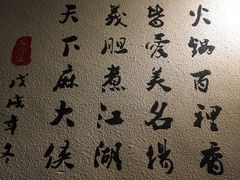 火锅百裡香
皆爱美名揚
義胆煮江湖
天下麻大侠
戊戌年冬